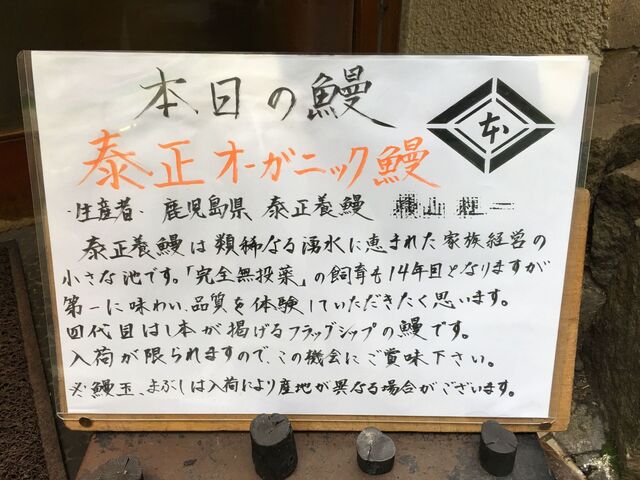 本日の鰻
本
泰正オーガニック鰻
-生産者- 鹿児島県 泰正養鰻
泰正養鰻は類稀なる湧水に恵まれた家族経営の
小さな池です。「完全無投薬」の飼育も14年目となりますが
第一に味わい、品質を体験していただきたく思います。
四代目はし本が掲げるフラッグシップの鰻です。
入荷が限られますので、この機会にご賞味下さい。
※鰻玉、まぶしは入荷により産地が異なる場合がございます。